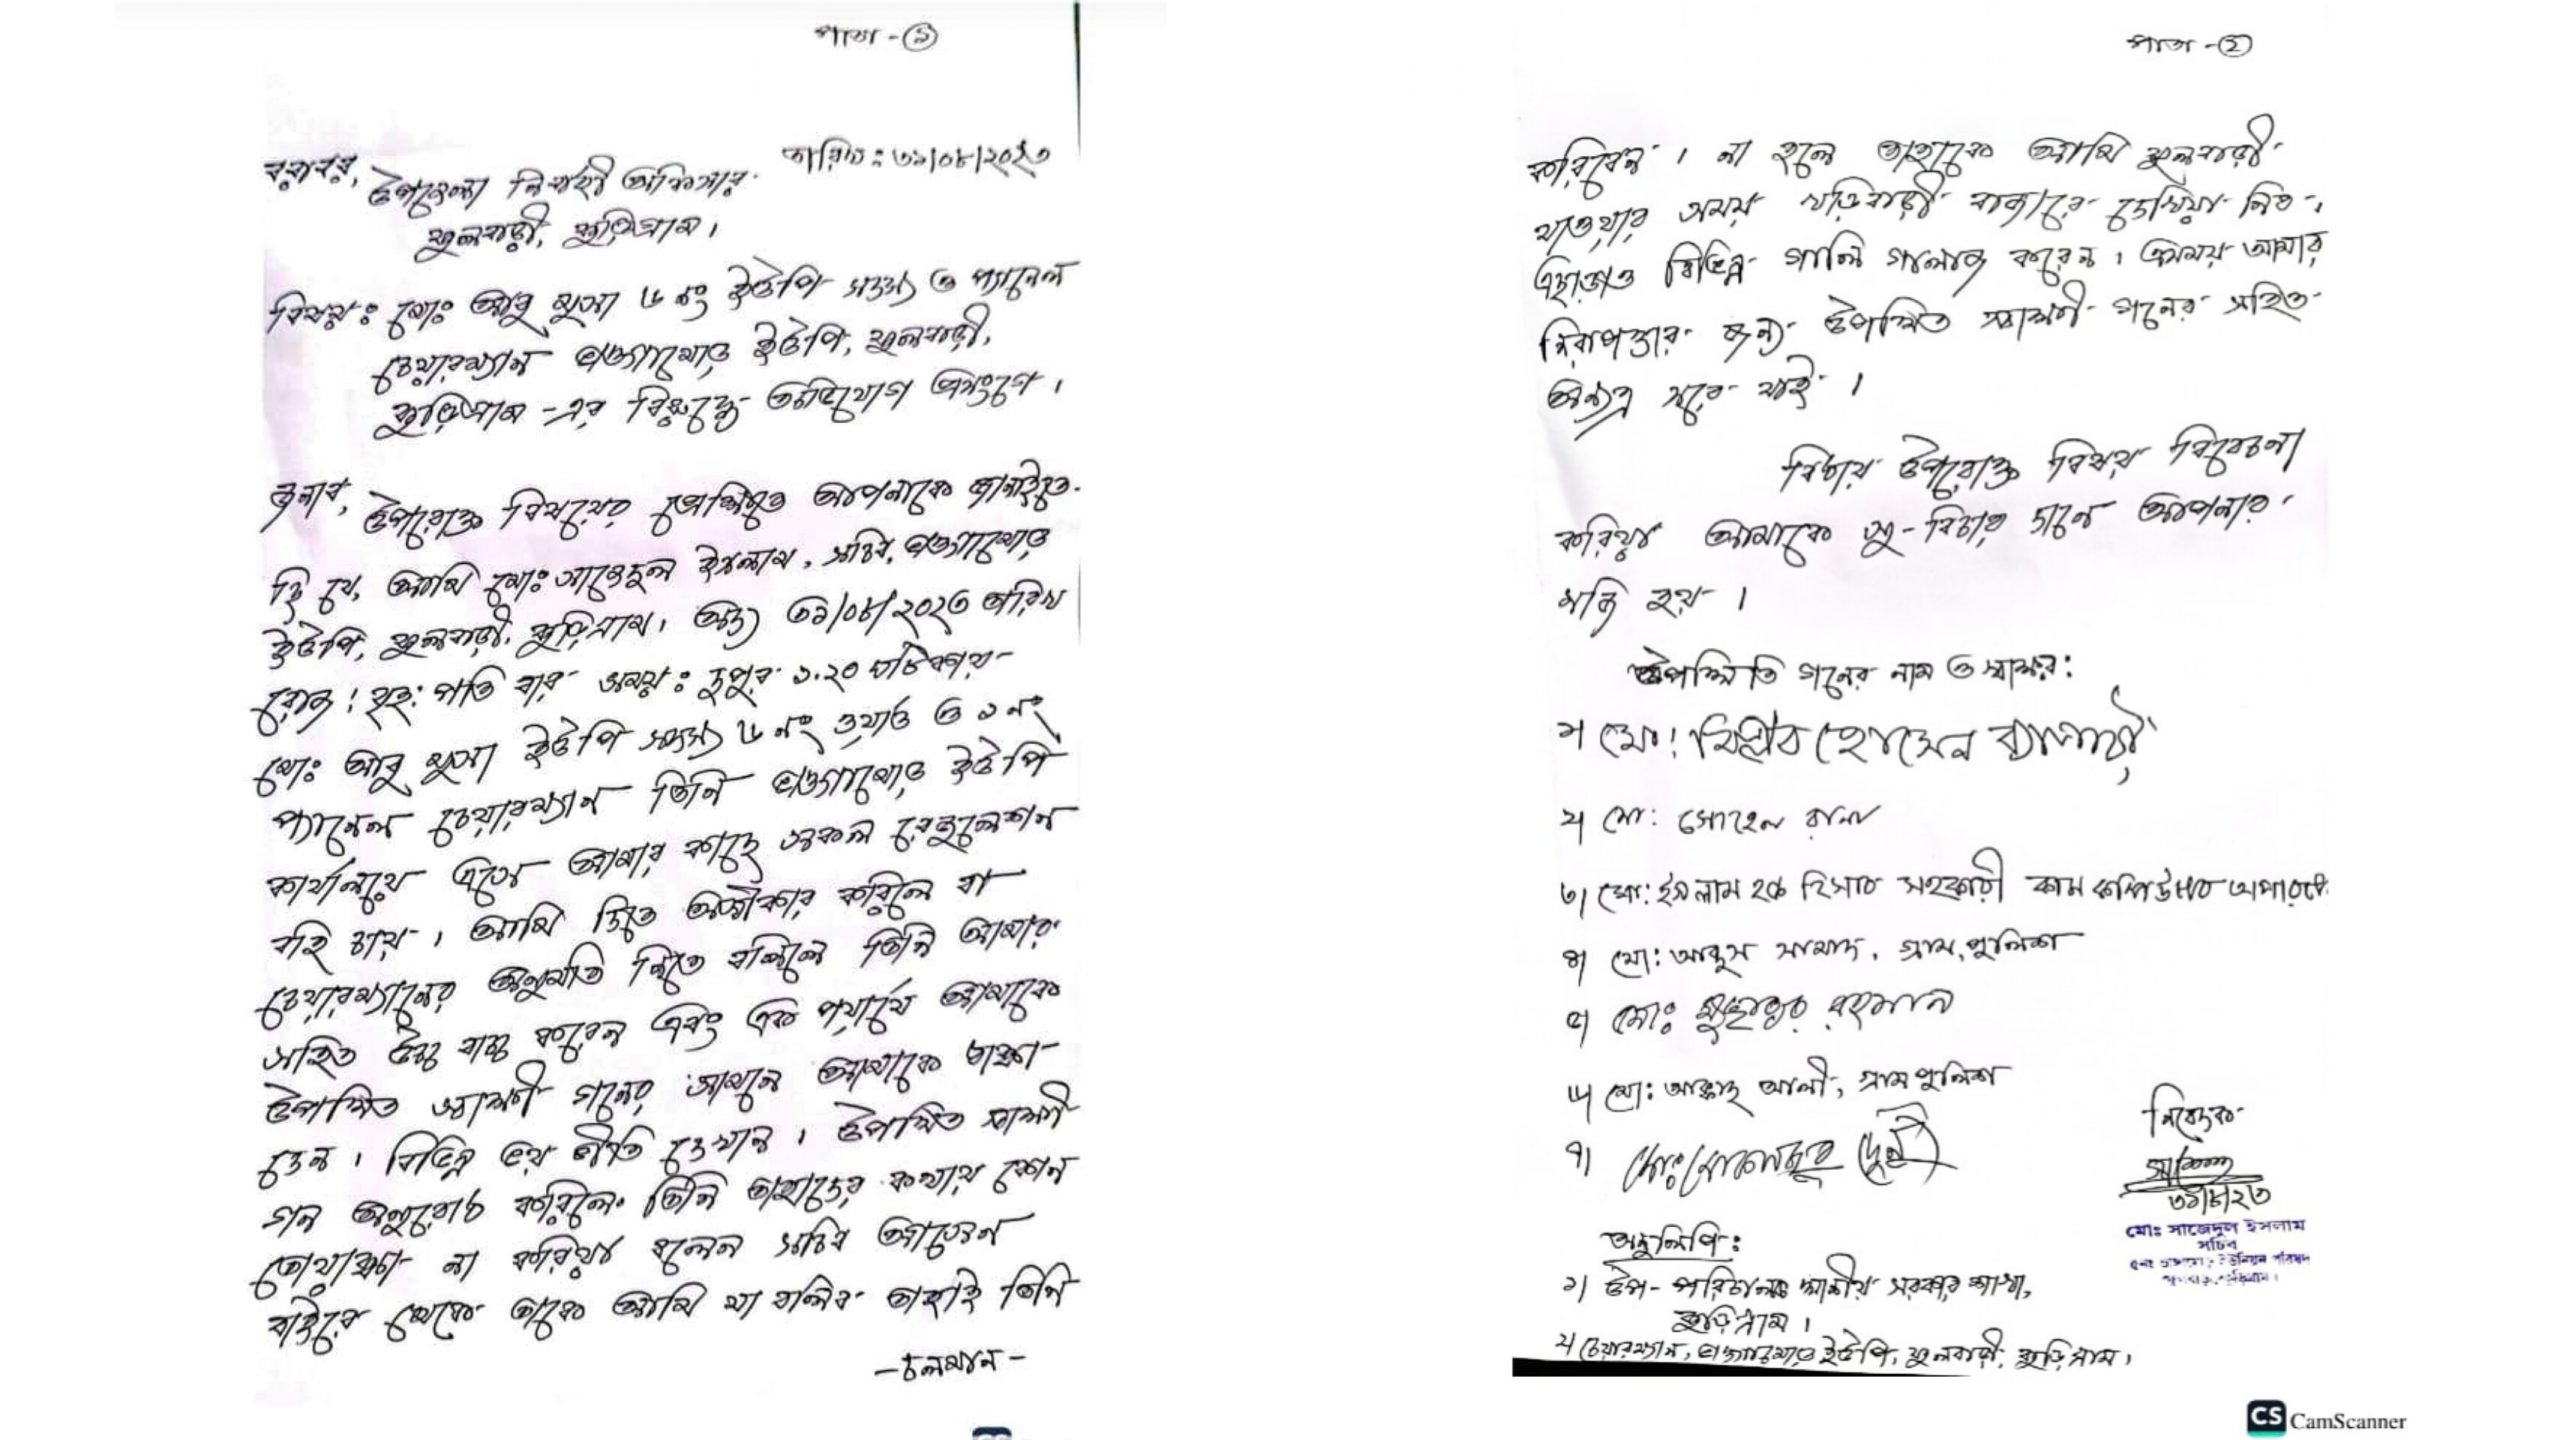 পাতা - ১
তারিখ: ৩১/০৮/২০২৩
বরাবর,
উপজেলা নির্বাহী অফিসার
ফুলবাড়ী, কুড়িগ্রাম।
বিষয়: মোঃ আবু মুসা ৬ নং ইউপি সদস্য ও প্যানেল
চেয়ারম্যান ভাঙ্গামোড় ইউপি, ফুলবাড়ী,
কুড়িগ্রাম -এর বিরুদ্ধে অভিযোগ প্রসংগে।
জনাব,
উপরোক্ত বিষয়ের প্রেক্ষিতে আপনাকে জানাইতে
ছি যে, আমি মোঃ সাজেদুল ইসলাম, সচিব, ভাঙ্গামোড়
ইউপি, ফুলবাড়ী, কুড়িগ্রাম। অদ্য ৩১/০৮/২০২৩ তারিখ
রোজ: বৃহ: পতি বার সময়: দুপুর ১.২০ ঘটিকায়
মোঃ আবু মুসা ইউপি সদস্য ৬ নং ওয়ার্ড ও ১ নং
প্যানেল চেয়ারম্যান তিনি ভাঙ্গামোড় ইউপি
কার্যালয়ে এসে আমার কাছে সকল রেজুলেশন
বহি চায়। আমি দিতে অস্বীকার করিলে বা
চেয়ারম্যানের অনুমতি নিতে বলিলে তিনি আমার
সহিত উচ্চ বাচ্চ করেন এবং এক পর্যায়ে আমাকে
উপস্থিত স্বাক্ষী গনের সামনে আমাকে ধাক্কা
দেন। বিভিন্ন ভয় ভীতি দেখান। উপস্থিত স্বাক্ষী
গন অনুরোধ করিলে তিনি তাহাদের কথায় কোন
তোয়াক্কা না করিয়া বলেন সচিব আসেন
বাইরে থেকে তাকে আমি যা বলিব তাহাই তিনি
-চলমান-
পাতা -২
করিবেন। না হলে তাহাকে আমি ফুলবাড়ী
যাওয়ার সময় খড়িবাড়ী বাজারে দেখিয়া নিব।
এছাড়াও বিভিন্ন গালি গালাজ করেন। এসময় আমার
নিরাপত্তার জন্য উপস্থিত স্বাক্ষী গনের সহিত
অন্যত্র সরে যাই।
বিধায় উপরোক্ত বিষয় বিবেচনা
করিয়া আমাকে সু-বিচার দানে আপনার
মর্জি হয়।
উপস্থিতি গনের নাম ও স্বাক্ষর:
১। মো: হোসেন ব্যাপারী
২। মো: সোহেল রানা
৩। মো: ইসলাম হক হিসাব সহকারী কাম কম্পিউটার অপারেটর
৪। মো: আব্দুস সামাদ, গ্রাম পুলিশ
৫। মোঃ রহমান
৬। মো: আক্কাছ আলী, গ্রাম পুলিশ
৭। মোঃ
নিবেদক
৩১/৮/২৩
মোঃ সাজেদুল ইসলাম
সচিব
৫নং ভাঙ্গামোড় ইউনিয়ন পরিষদ
ফুলবাড়ী, কুড়িগ্রাম।
অনুলিপি:
১। উপ-পরিচালক স্থানীয় সরকার শাখা,
কুড়িগ্রাম।
২। চেয়ারম্যান, ভাঙ্গামোড় ইউপি, ফুলবাড়ী, কুড়িগ্রাম।
CS CamScanner